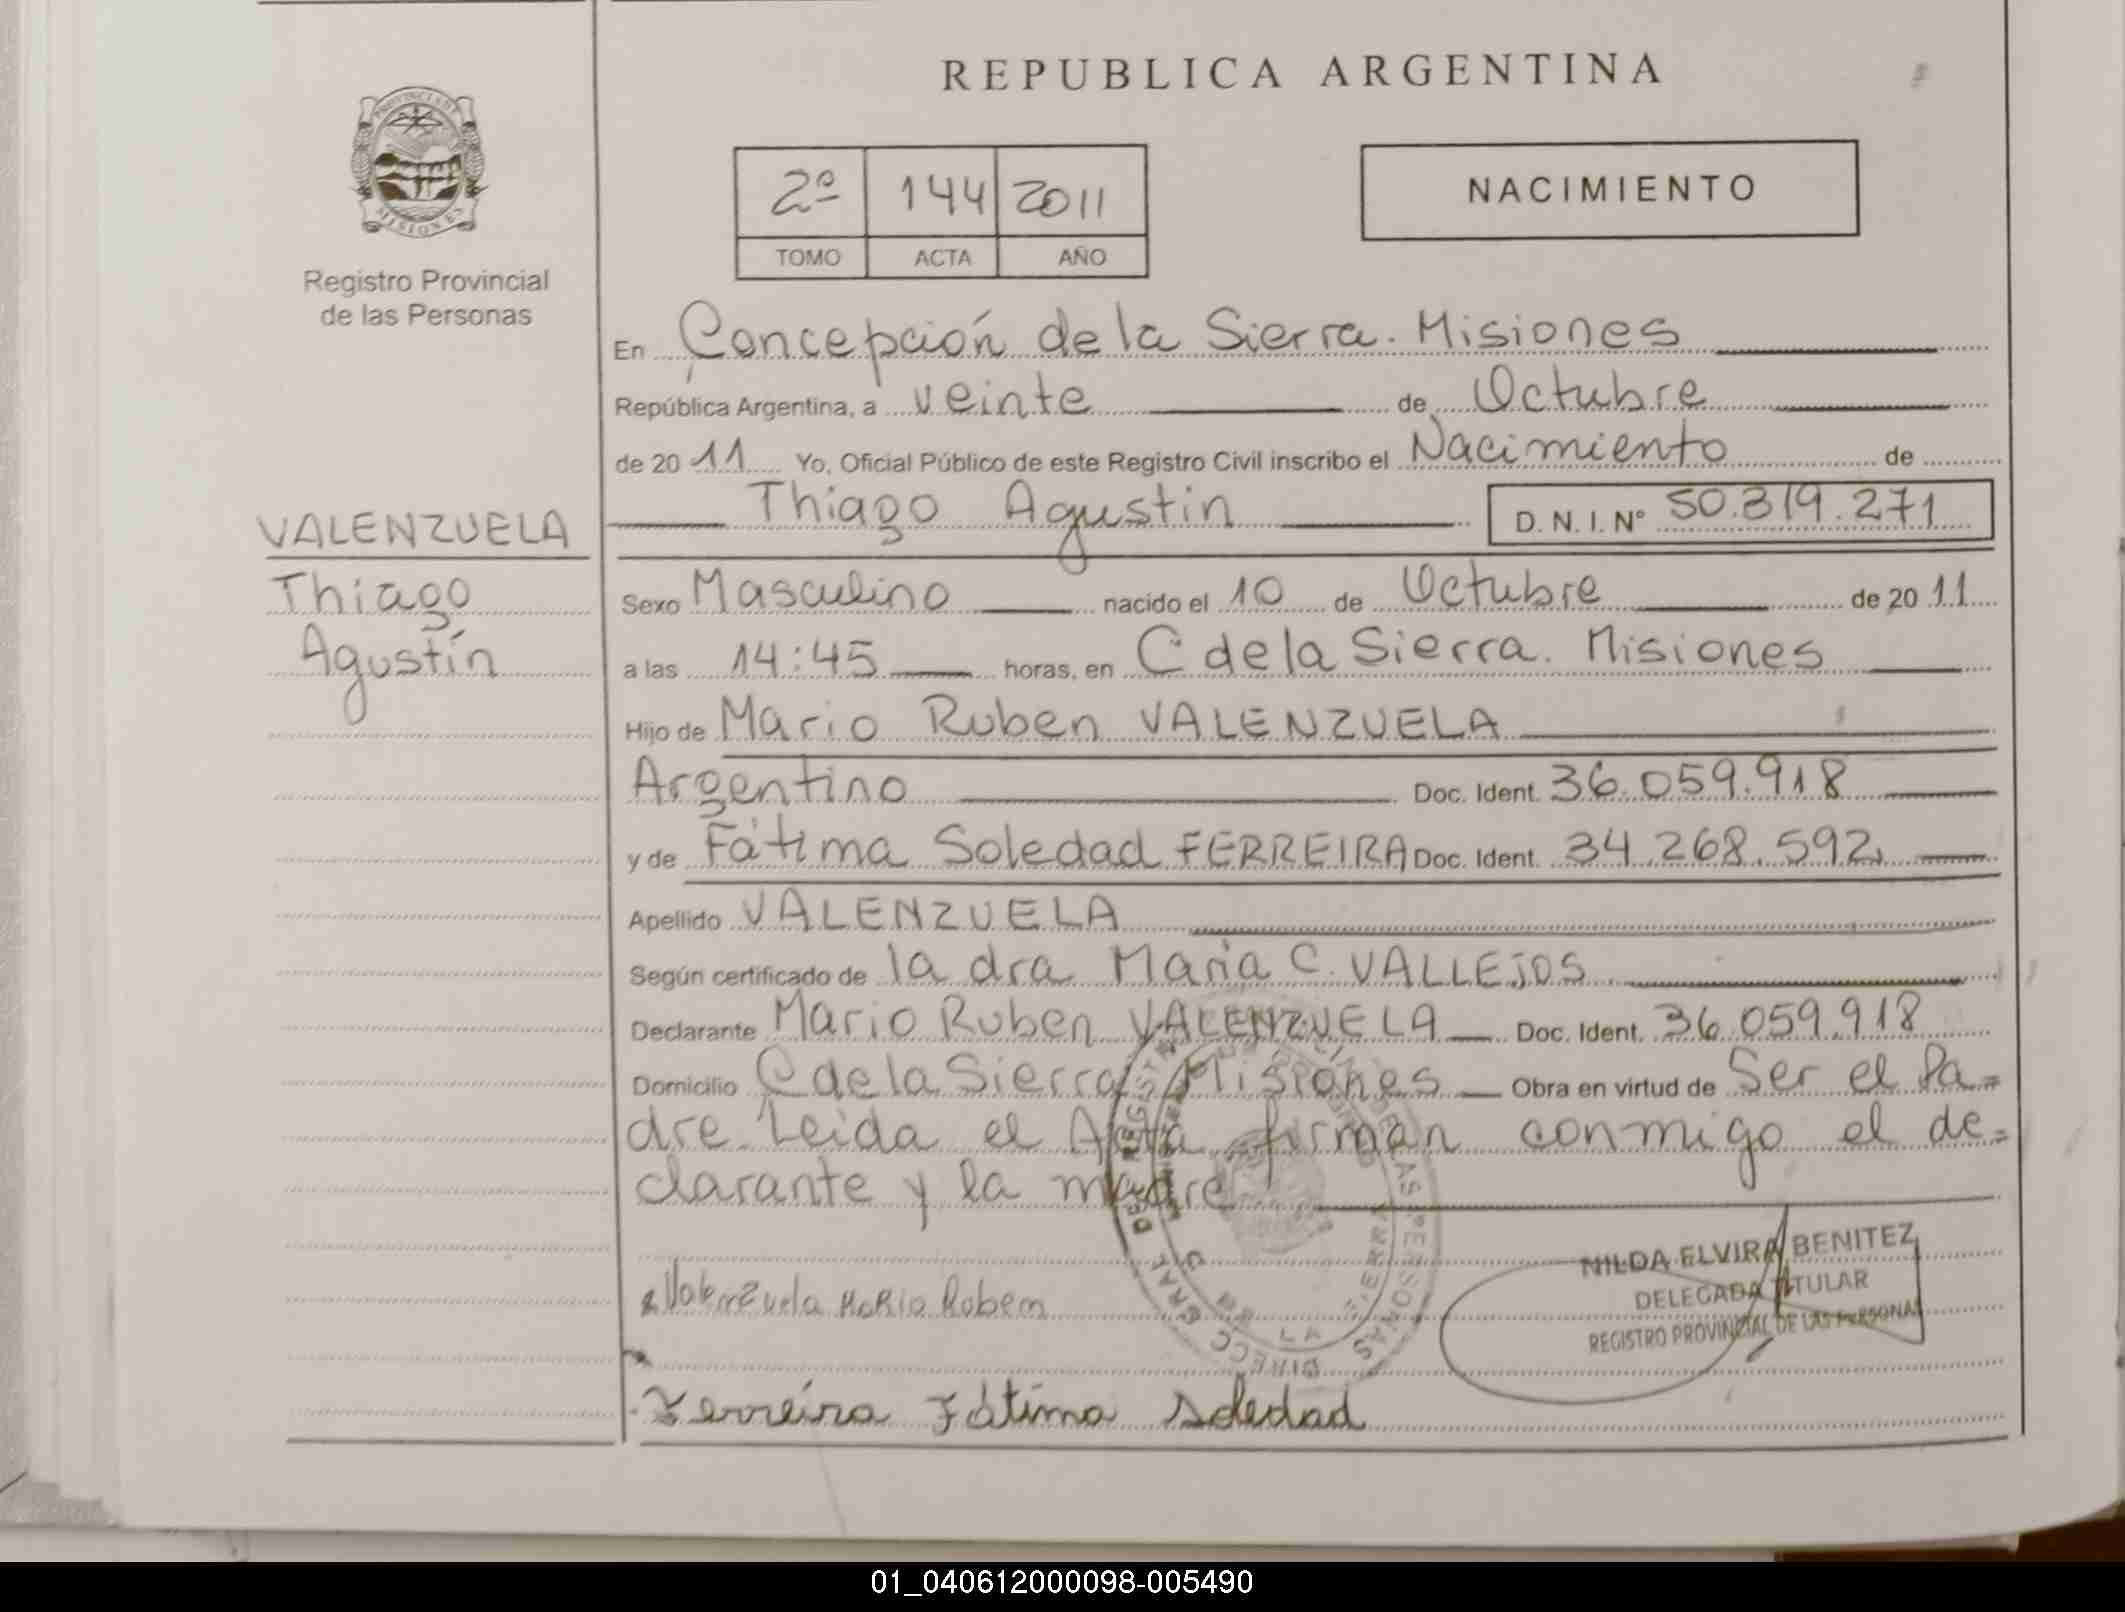 REPUBLICA ARGENTINA
PROVINCIA DE MISIONES
Registro Provincial
de las Personas
2º 144 2011
TOMO ACTA AÑO
NACIMIENTO
En Concepción de la Sierra. Misiones
República Argentina, a veinte de Octubre
de 2011 Yo, Oficial Público de este Registro Civil inscribo el Nacimiento de
Thiago Agustin D. N. I. Nº 50.319.271
VALENZUELA
Thiago
Agustín
Sexo Masculino nacido el 10 de Octubre de 2011
a las 14:45 horas, en C de la Sierra. Misiones
Hijo de Mario Ruben VALENZUELA
Argentino Doc. Ident. 36.059.918
y de Fátima Soledad FERREIRA Doc. Ident. 34.268.592
Apellido VALENZUELA
Según certificado de la dra Maria C. VALLEJOS
Declarante Mario Ruben VALENZUELA Doc. Ident. 36.059.918
Domicilio C de la Sierra Misiones Obra en virtud de Ser el Pa=
dre. Leida el Acta firman conmigo el de=
clarante y la madre
Valenzuela Mario Ruben
NILDA ELVIRA BENITEZ
DELEGADA TITULAR
REGISTRO PROVINCIAL DE LAS PERSONAS
Ferreira Fátima Soledad
01_040612000098-005490